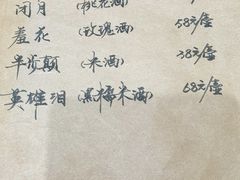 闭月 (桃花酒) 58元/壶
羞花 (玫瑰酒) 58元/壶
半沙颠 (米酒) 38元/壶
英雄泪 (黑糯米酒) 68元/壶